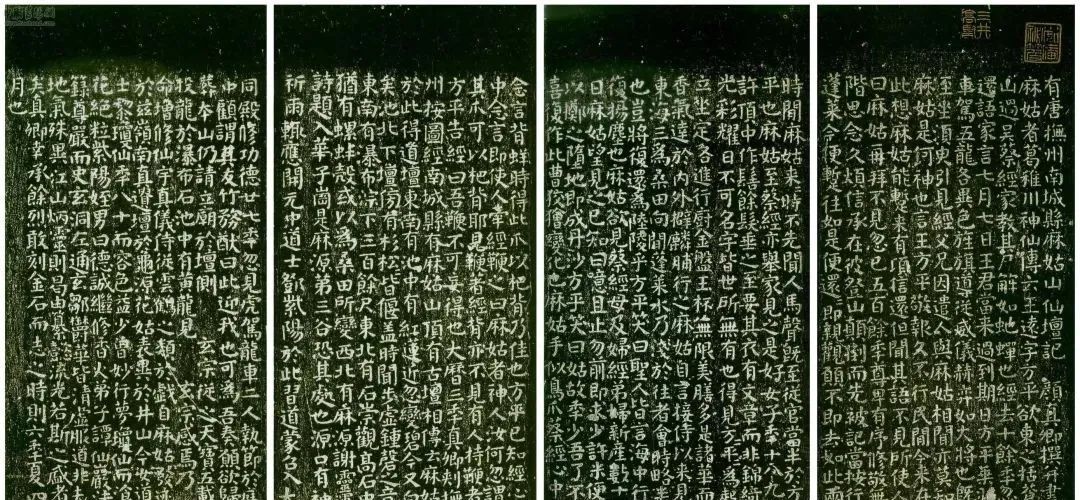 有唐撫州南城縣麻姑山仙壇記 顏真卿撰并書
麻姑者葛稚川神仙傳云王遠字方平欲東之括蒼
山過吳蔡經家教其尸解如蛇蟬也經去十餘年忽
還語家言七月七日王君當來過到期日方平乘羽
車駕五龍各異色旌旗導從威儀赫弈如大將也既
至坐須臾引見經父兄因遣人與麻姑相聞亦莫知
麻姑是何神也言王方平敬報久不行民間今來在
此想麻姑能暫來有頃信還但聞其語不見所使人
曰麻姑再拜不見忽已五百餘年尊卑有序修敬無
階思念久煩信承在彼登山顛倒而先被記當按行
蓬萊今便暫往如是便還還即親觀願不即去如此兩
時間麻姑來來時不先聞人馬聲既至從官當半於方
平也麻姑至蔡經亦舉家見之是好女子年十八九
許頂中作髻餘髮垂之至要其衣有文章而非錦綺
光彩耀日不可名字皆世所無有也得見方平方平為起
立坐定各進行廚金盤玉杯無限美膳多是諸華而
香氣達於內外擗麟脯行之麻姑自言接待以來見
東海三為桑田向間蓬萊水乃淺於往者會時略半
也豈將復還為陵陸乎方平笑曰聖人皆言海中行
復揚塵也麻姑欲見蔡經母及婦經弟婦新產數十
日麻姑望見之已知曰噫且止勿前即求少許米便
以擲之墮地即成丹沙方平笑曰姑故年少吾了不
喜復作此曹狡獪變化也麻姑手似鳥爪蔡經心中
念言背蛘時得此爪以杷背乃佳也方平已知經心
中念言即使人牽經鞭之曰麻姑者神人汝何忽謂
其爪可以杷背耶見鞭著經背亦不見有人持鞭者
方平告經曰吾鞭不可妄得也大曆三年真卿刺撫
州按圖經南城縣有麻姑山頂有古壇相傳云麻姑
於此得道壇東南有池中有紅蓮近忽變碧今又白
矣池北下壇傍有杉松皆偃蓋時聞步虛鍾磬之音
東南有瀑布淙下三百餘尺東北有石崇觀高石中
猶有螺蚌殼或以為桑田所變西北有麻源謝靈運
詩題入華子崗是麻源第三谷恐其處也源口有神
祈雨輒應開元中道士鄧紫陽於此習道蒙召入大
同殿修功德廿七年忽見虎駕龍車二人執節於庭
中顧謂其友竹務猷曰此迎我也可為吾奏願欲歸
葬本山仍請立廟於壇側玄宗從之天寶五載
投龍於瀑布石池中有黃龍見玄宗感焉乃
命增修仙宇真儀侍從雲鶴之類於戲自麻姑發迹
於茲嶺南真遺壇於龜源花姑表異於井山今女道
士黎瓊仙年八十而容色益少曾妙行夢瓊仙而餐
花絕粒紫陽姪男曰德誠繼修香火弟子譚仙巖法
籙尊嚴而史玄洞左通玄鄒鬱華皆清虛服道非夫
地氣殊異江山炳靈則曷由纂懿流光若斯之盛者
矣真卿幸承餘烈敢刻金石而志之時則六年夏四
月也